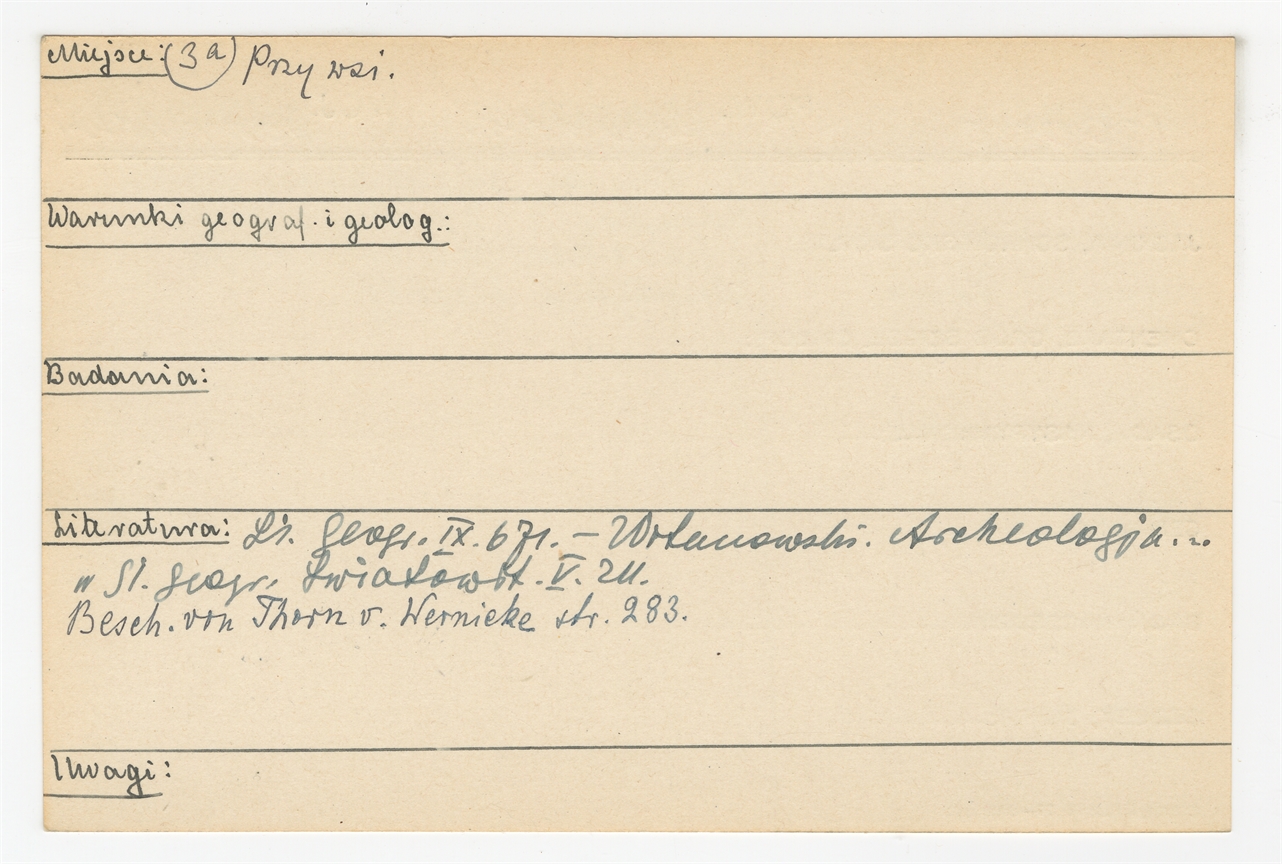 Miejsce: (3a) Przy wsi.
Warunki geograf. i geolog.:
Badania:
Literatura: geogr. IX. 671. – Archeologja...
" Sl. geogr. Światowit. V. 211.
Besch. von Thorn v. Wernicke str. 283.
Uwagi: